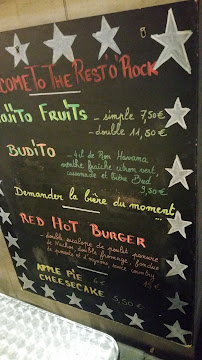 COME TO THE REST'O'ROCK
OJITO FRUITS - simple 7,50€
- double 11,50€
BUDITO - 4cl de Rhum Havana
menthe fraîche citron vert,
cassonade et bière Bud
9,50€
Demander la bière du moment...
RED HOT BURGER
- double escalope de poulet panure
de Nachos, double fromage, fondue
de poivrons et d'oignons, sauce
APPLE PIE 6€
CHEESECAKE 5,50€